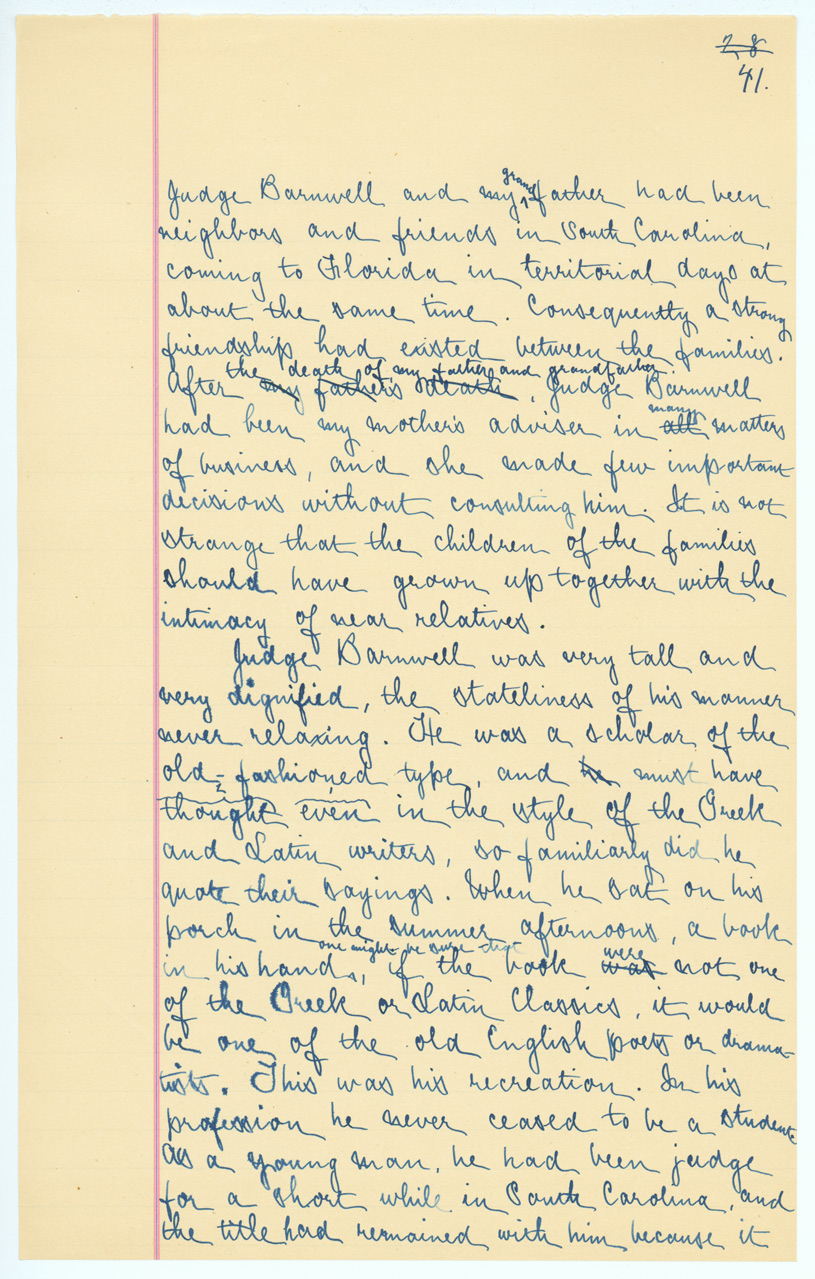 28
41.
Judge Barnwell and my grandfather had been
neighbors and friends in South Carolina,
coming to Florida in territorial days at
about the same time. Consequently a strong
friendship had existed between the families.
the death of my father and grandfather
After my father's death, Judge Barnwell
many
had been my mother's adviser in all matters
of business, and she made few important
decisions without consulting him. It is not
strange that the children of the families
should have grown up together with the
intimacy of near relatives.
Judge Barnwell was very tall and
very dignified, the stateliness of his manner
never relaxing. He was a scholar of the
old-fashioned type, and he must have
thought even in the style of the Greek
and Latin writers, so familiarly did he
quote their sayings. When he sat on his
porch in the summer afternoons, a book
one might be sure that were
in his hand, if the book was not one
of the Greek or Latin Classics, it would
be one of the old English poets or drama-
tists. This was his recreation. In his
profession he never ceased to be a student
as a young man, he had been judge
for a short while in South Carolina, and
the title had remained with him because it